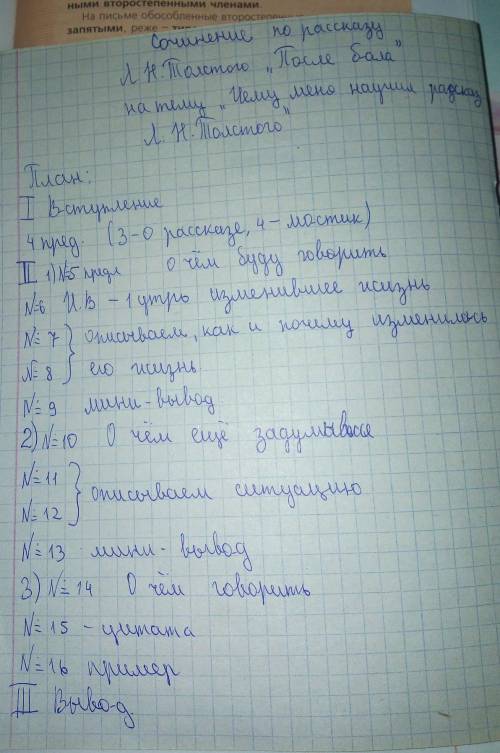 ными второстепенными членами.
На письме обособленные второстепе
запятыми, реже – тире
Сочинение по рассказу
Л.Н.Толстого „После бала"
на тему „Чему меня научил рассказ
Л.Н.Толстого"
План:
I Вступление
4 пред. (3-О рассказе, 4-мостик)
II 1) №5 предл О чём буду говорить
№6 И.В – 1 утро изменившее жизнь
№7 } описываем, как и почему изменилась
№8 его жизнь
№9 мини-вывод
2) №10 О чём ещё задумывался
№11
№12 } описываем ситуацию
№13 мини-вывод
3) №14 О чём говорить
№15 – цитата
№16 пример
III Вывод